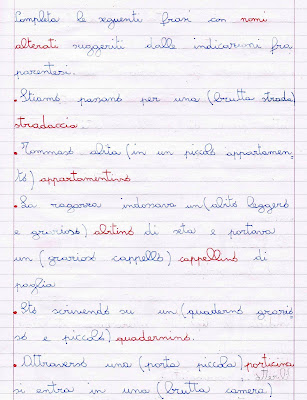 Completa le seguenti frasi con nomi
alterati suggeriti dalle indicazioni fra
parentesi.
• Stiamo passando per una (brutta strada)
stradaccia.
• Tommaso abita (in un piccolo appartamen-
to) appartamentino
• La ragazza indossava un (abito leggero
e grazioso) abitino di seta e portava
un (grazioso cappello) cappellino di
paglia
• Sto scrivendo su un (quaderno grazio
so e piccolo) quadernino.
• Attraverso una (porta piccola) porticina
si entra in una (brutta camera)